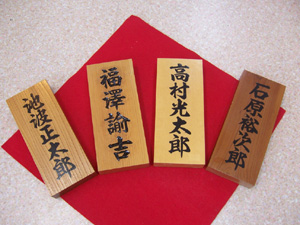 池波正太郎
福澤諭吉
高村光太郎
石原裕次郎